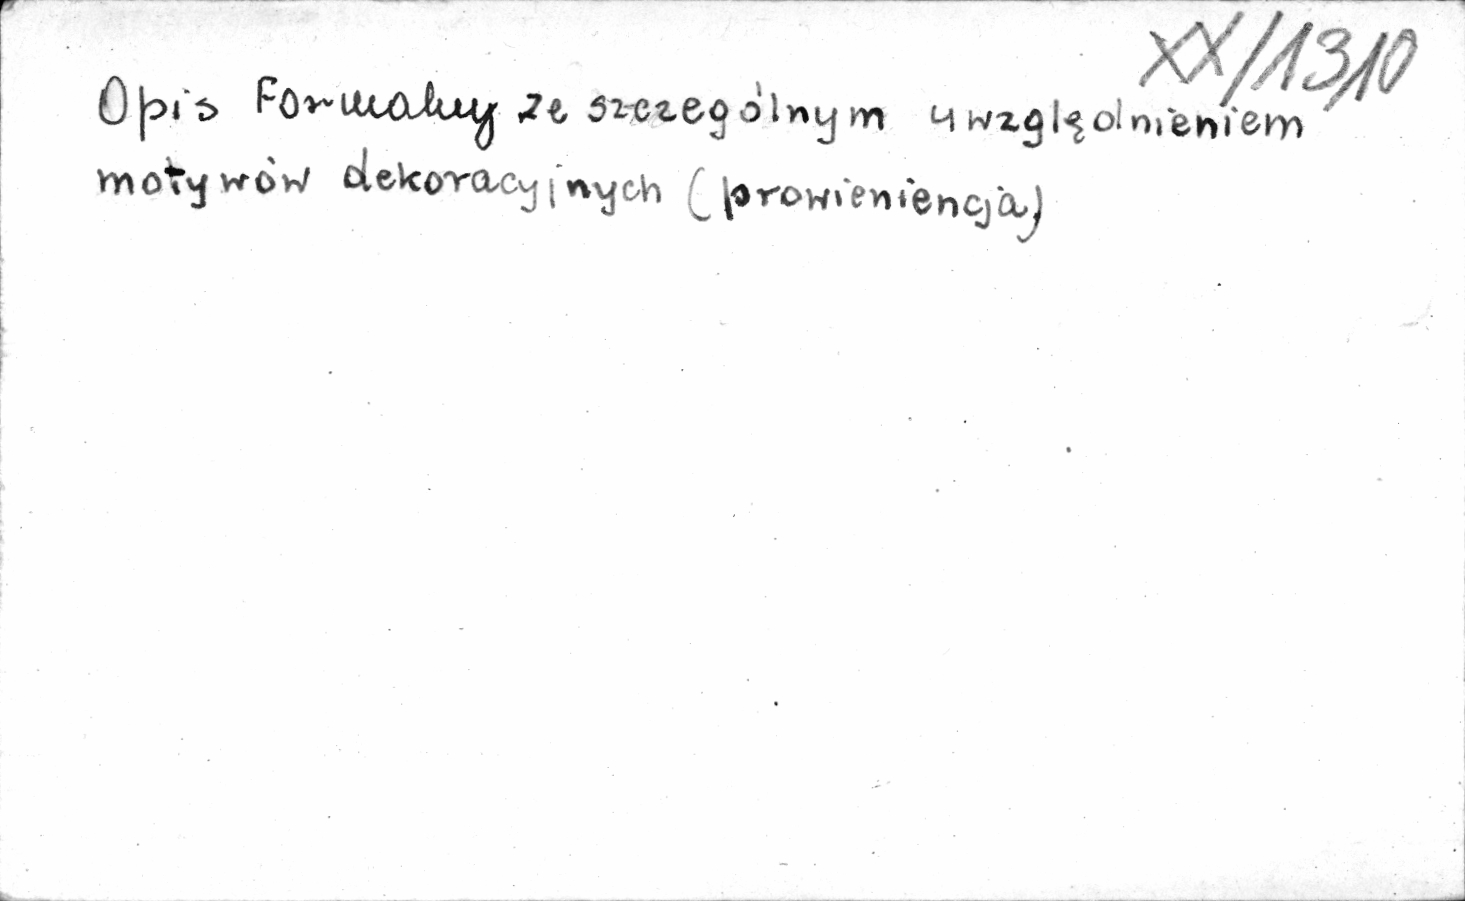 XX/1310
Opis Formalny ze szczególnym uwzględnieniem
motywów dekoracyjnych (prowieniencja)